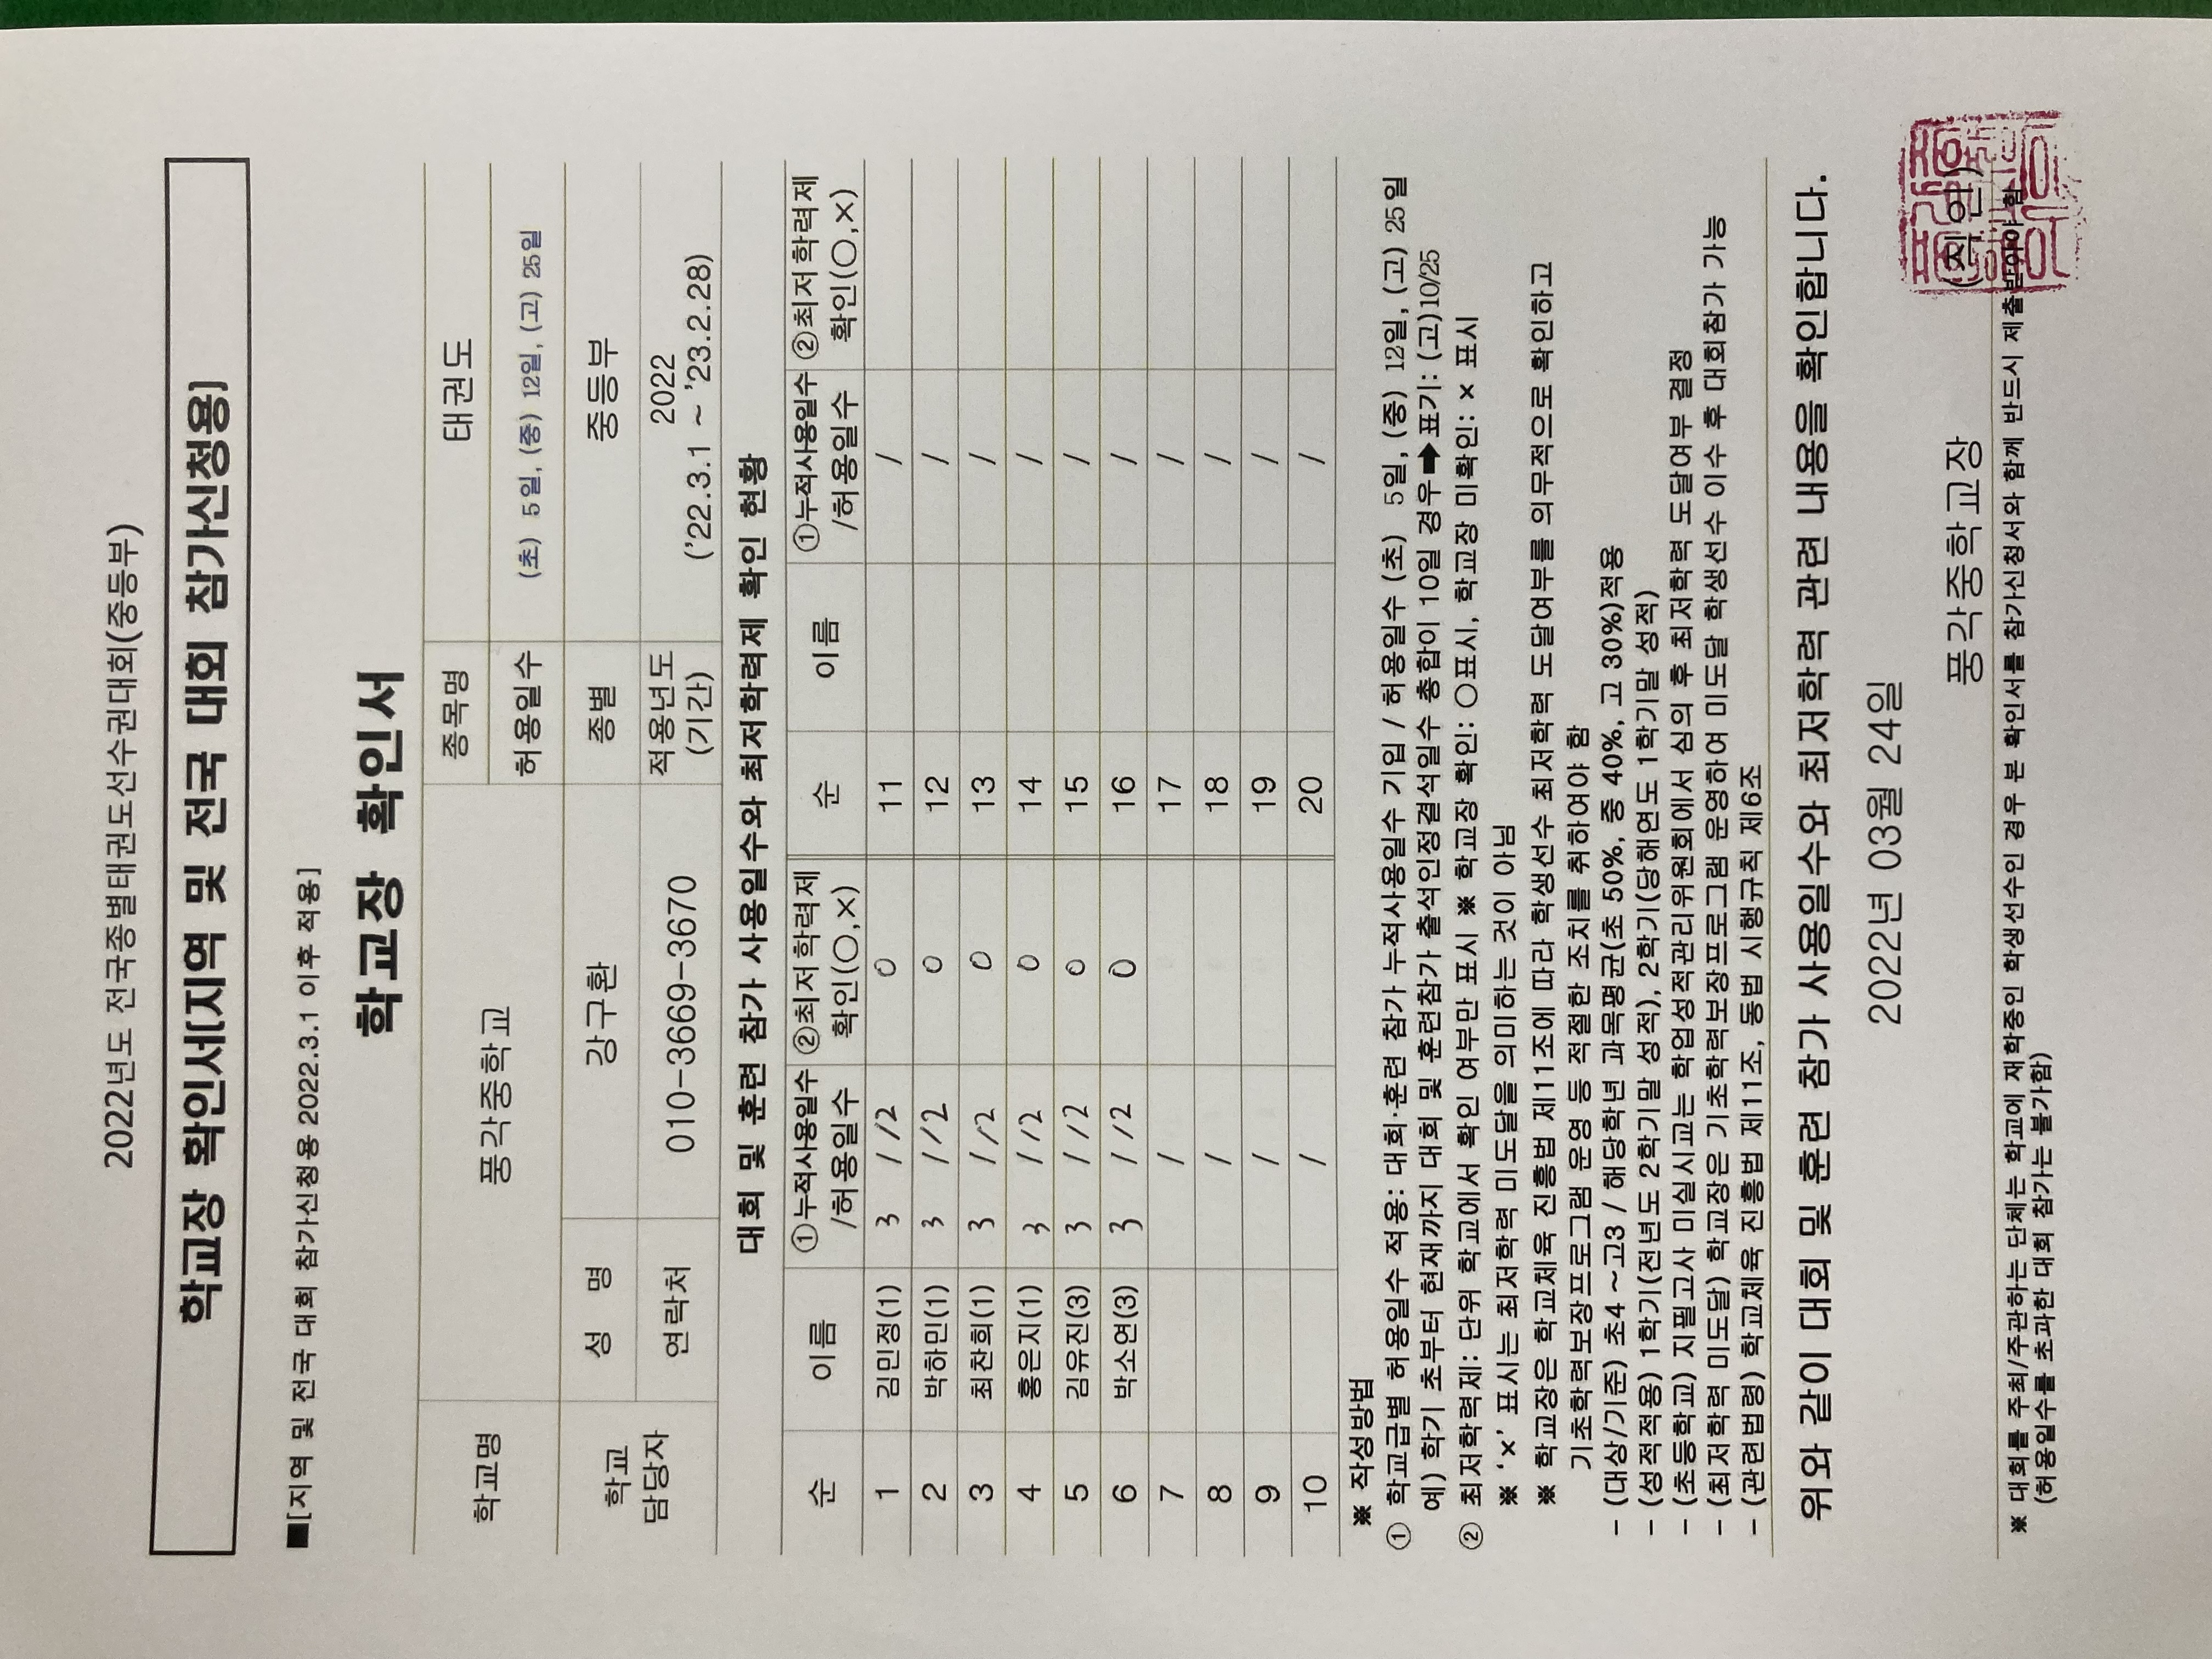 2022년도 전국종별태권도선수권대회(중등부)
학교장 확인서[지역 및 전국 대회 참가신청용]
■[지역 및 전국 대회 참가신청용 2022.3.1 이후 적용]
학교장 확인서
학교명 풍각중학교 종목명 태권도
허용일수 (초) 5일, (중) 12일, (고) 25일
학교 담당자 성 명 강구환 종별 중등부
연락처 010-3669-3670 적용년도 (기간) 2022 ('22.3.1 ~ '23.2.28)
대회 및 훈련 참가 사용일수와 최저학력제 확인 현황
순 이름 ①누적사용일수 /허용일수 ②최저학력제 확인(○,×) 순 이름 ①누적사용일수 /허용일수 ②최저학력제 확인(○,×)
1 김민정(1) 3 / 12 0 11 /
2 박하민(1) 3 / 12 0 12 /
3 최찬희(1) 3 / 12 0 13 /
4 홍은지(1) 3 / 12 0 14 /
5 김유진(3) 3 / 12 0 15 /
6 박소연(3) 3 / 12 0 16 /
7 / 17 /
8 / 18 /
9 / 19 /
10 / 20 /
※ 작성방법
① 학교급별 허용일수 적용: 대회·훈련 참가 누적사용일수 기입 / 허용일수 (초) 5일, (중) 12일, (고) 25일
예) 학기 초부터 현재까지 대회 및 훈련참가 출석인정결석일수 총합이 10일 경우➡표기: (고)10/25
② 최저학력제: 단위 학교에서 확인 여부만 표시 ※ 학교장 확인: ○표시, 학교장 미확인: × 표시
※ '×' 표시는 최저학력 미도달을 의미하는 것이 아님
※ 학교장은 학교체육 진흥법 제11조에 따라 학생선수 최저학력 도달여부를 의무적으로 확인하고
기초학력보장프로그램 운영 등 적절한 조치를 취하여야 함
- (대상/기준) 초4 ~고3 / 해당학년 과목평균(초 50%, 중 40%, 고 30%)적용
- (성적적용) 1학기(전년도 2학기말 성적), 2학기(당해연도 1학기말 성적)
- (초등학교) 지필고사 미실시교는 학업성적관리위원회에서 심의 후 최저학력 도달여부 결정
- (최저학력 미도달) 학교장은 기초학력보장프로그램 운영하여 미도달 학생선수 이수 후 대회참가 가능
- (관련법령) 학교체육 진흥법 제11조, 동법 시행규칙 제6조
위와 같이 대회 및 훈련 참가 사용일수와 최저학력 관련 내용을 확인합니다.
2022년 03월 24일
풍각중학교장 (직인)
※ 대회를 주최/주관하는 단체는 학교에 재학중인 학생선수인 경우 본 확인서를 참가신청서와 함께 반드시 제출받아야 함
(허용일수를 초과한 대회 참가는 불가함)